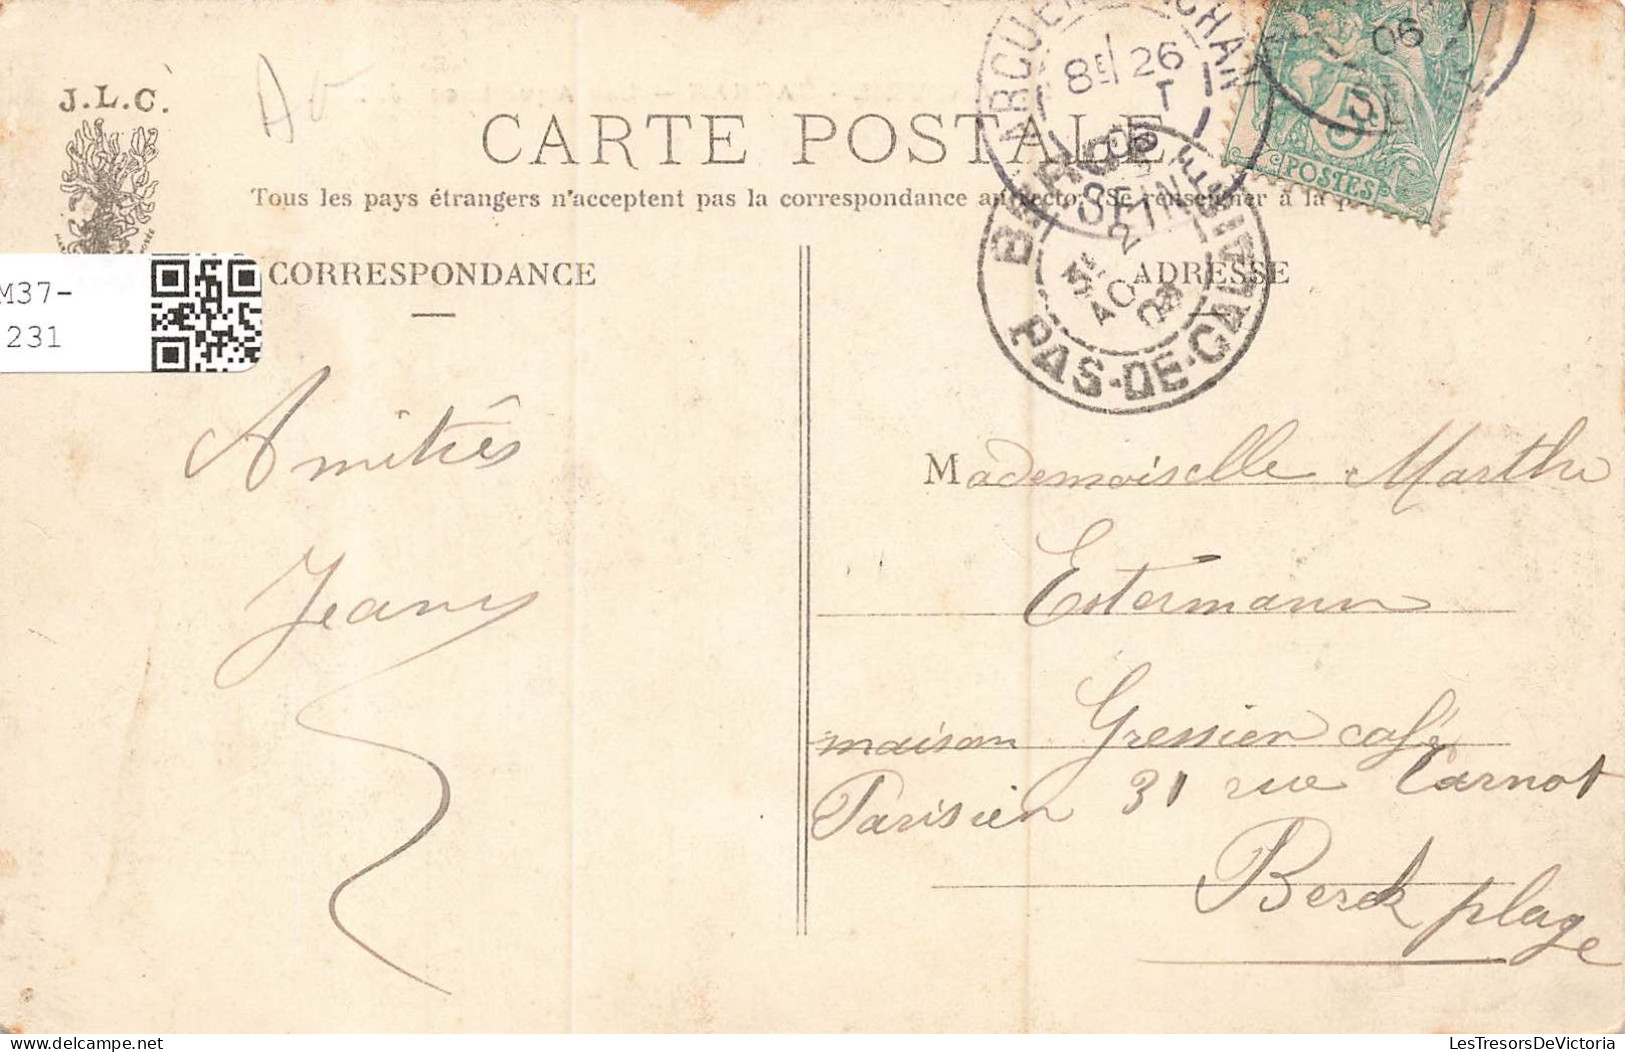 J.L.C.
CARTE POSTALE
Tous les pays étrangers n'acceptent pas la correspondance au recto. (Se renseigner à la p
CORRESPONDANCE
ADRESSE
M37-
231
ARCUEIL CACHAN
8E 26
06
SEINE
BERCK
PAS-DE-CALAIS
5
POSTES
06
Amitiés
Jeanne
Mademoiselle Marthe
Estermann
maison Gressier café
Parisien 31 rue Carnot
Berck plage
LesTresorsDeVictoria
delcampe.net